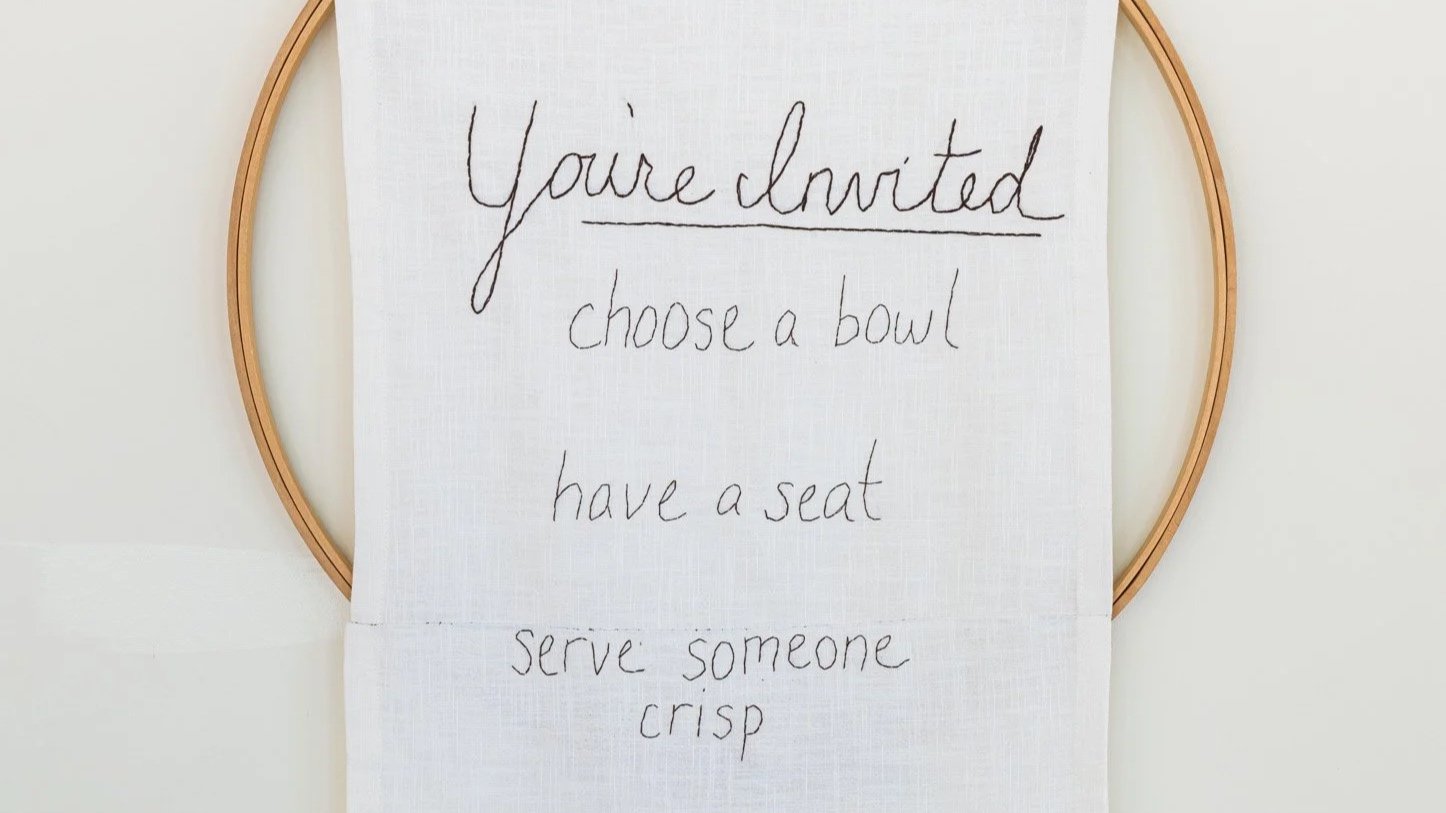 You're Invited
choose a bowl
have a seat
serve someone
crisp